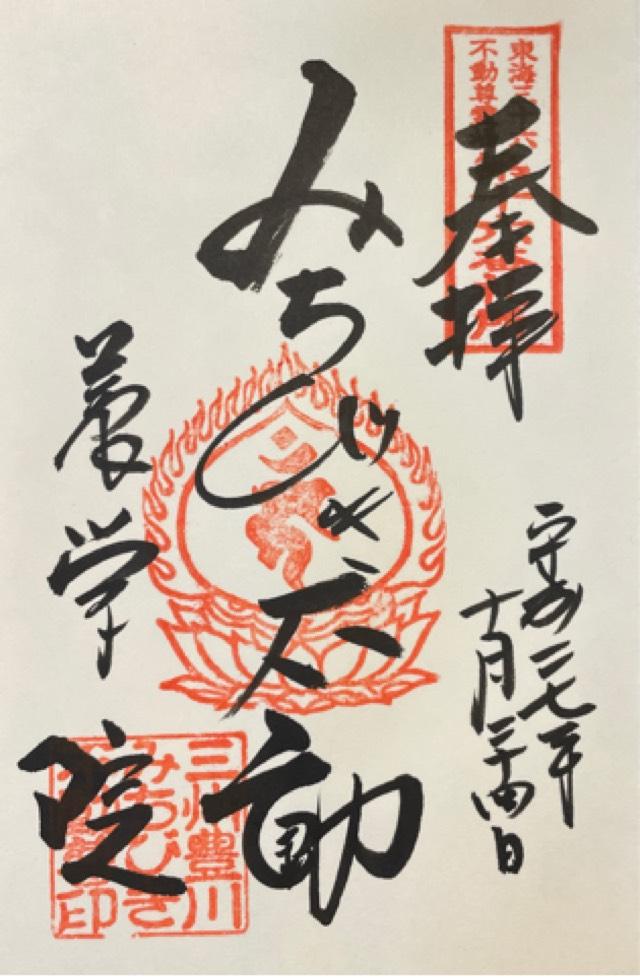 奉拝
東海三十六
不動尊霊
平成二七年
十月二十四日
みちびき不動
養学院
三州豊川
みちびき
印